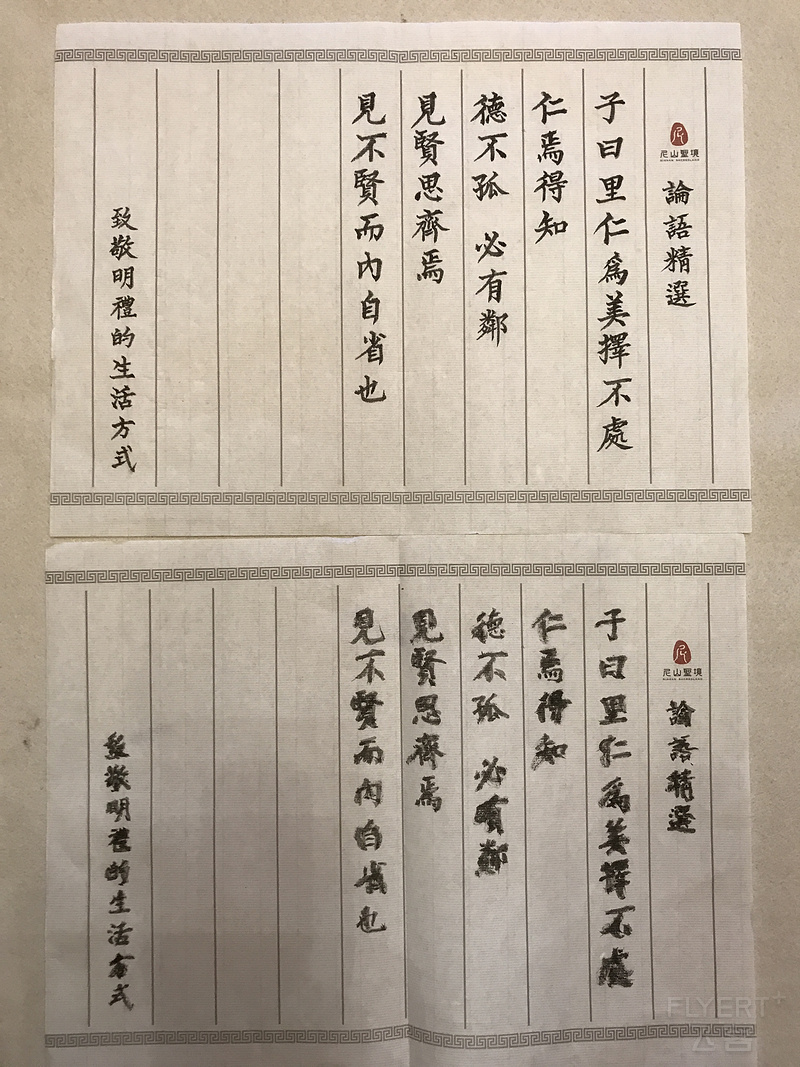 尼山聖境
論語精選
子曰里仁為美擇不處
仁焉得知
德不孤 必有鄰
見賢思齊焉
見不賢而內自省也
致敬明禮的生活方式
尼山聖境
論語精選
子曰里仁為美擇不處
仁焉得知
德不孤 必有鄰
見賢思齊焉
見不賢而內自省也
致敬明禮的生活方式
FLYERT+